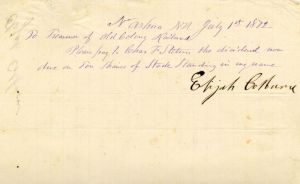 Nashua NH July 1st 1872
To Treasurer of Old Colony Railroad
Please pay to Chas F. Stetson the dividend now
due on Ten Shares of Stock Standing in my name
Elijah Colburn